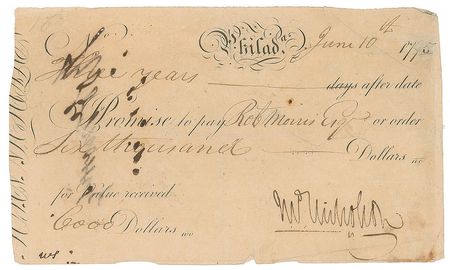 No. Philada. June 10th 1795
Three years days after date
I Promise to pay Rob Morris Esqr or order
Six thousand Dollars
for Value received
6000 Dollars Jno Nicholson